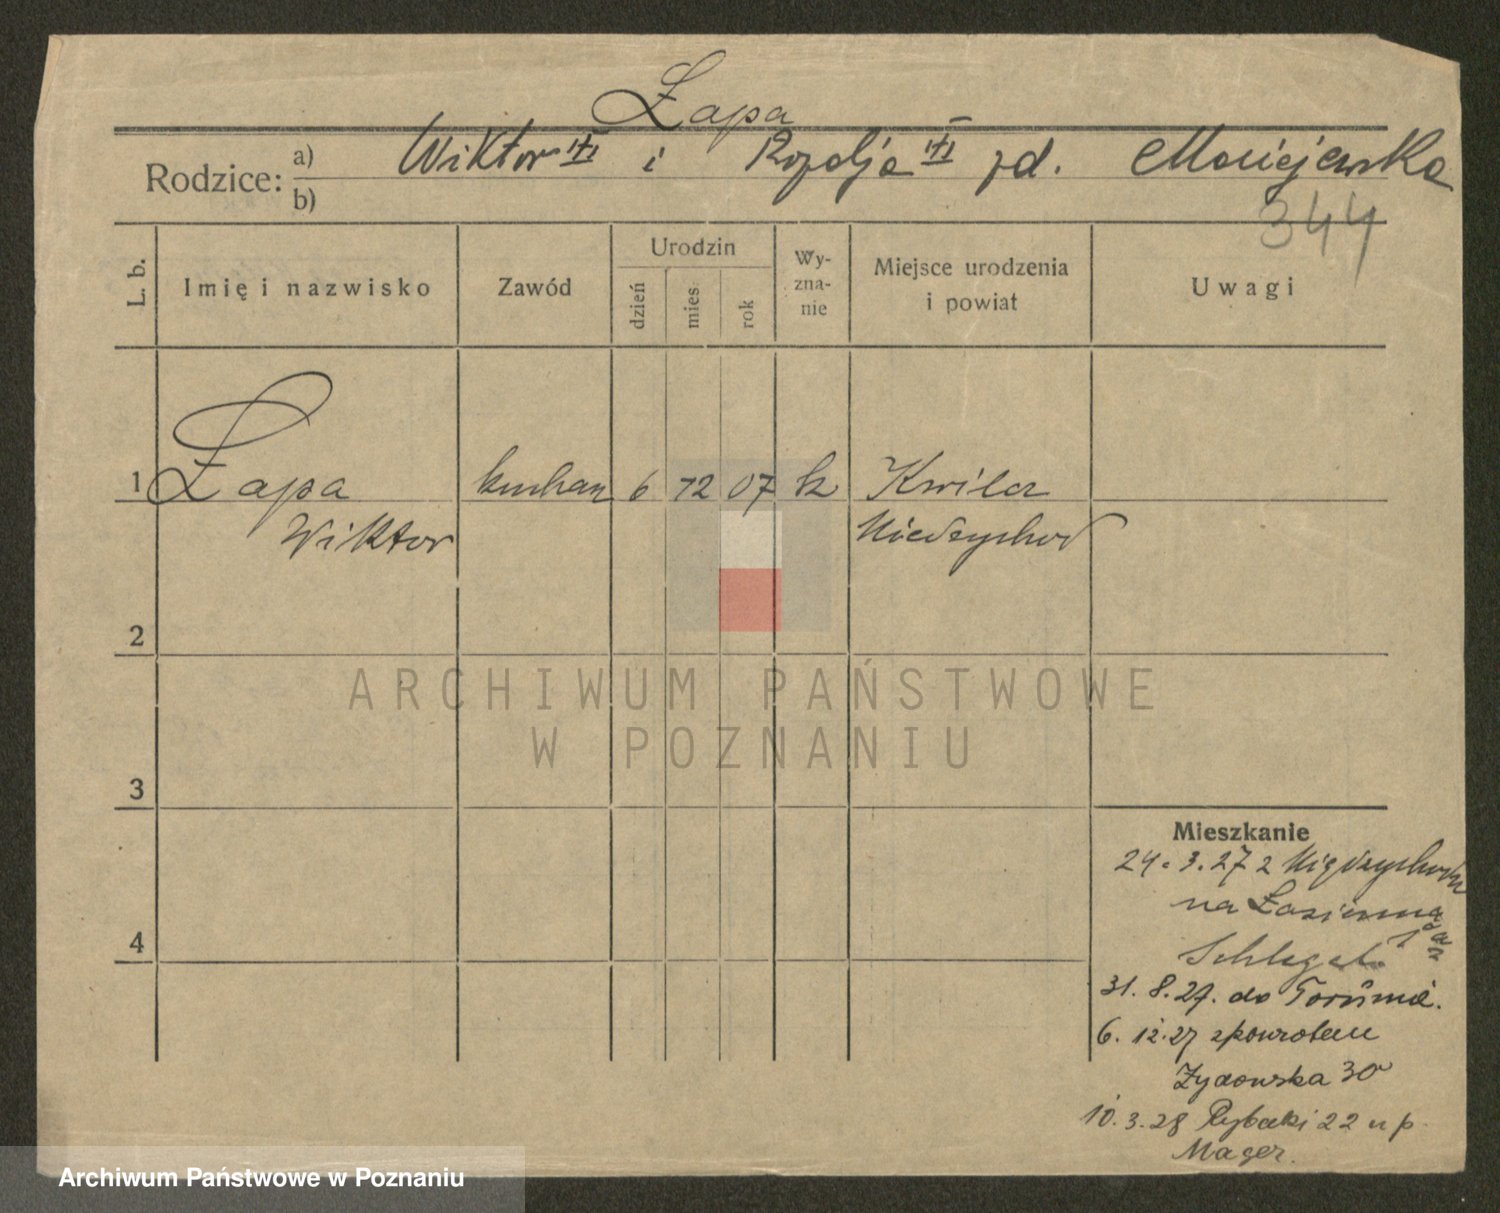 Łapa
Rodzice: a) Wiktor i Rozalja zd. Maciejewska
b)
344
L. b. Imię i nazwisko Zawód Urodzin dzień mies rok Wy-zna-nie Miejsce urodzenia i powiat Uwagi
1 Łapa kucharz 6 12 07 k Kwilcz
Wiktor Miedzychod
2
ARCHIWUM PAŃSTWOWE
W POZNANIU
3
Mieszkanie
24.3.27 z Międzychodu
na Łazienna
4
31.8.27. do Torunia.
6.12.27 zpowrotem
Żydowska 30
10.3.28 Rybaki 22 u p.
Mager.
Archiwum Państwowe w Poznaniu